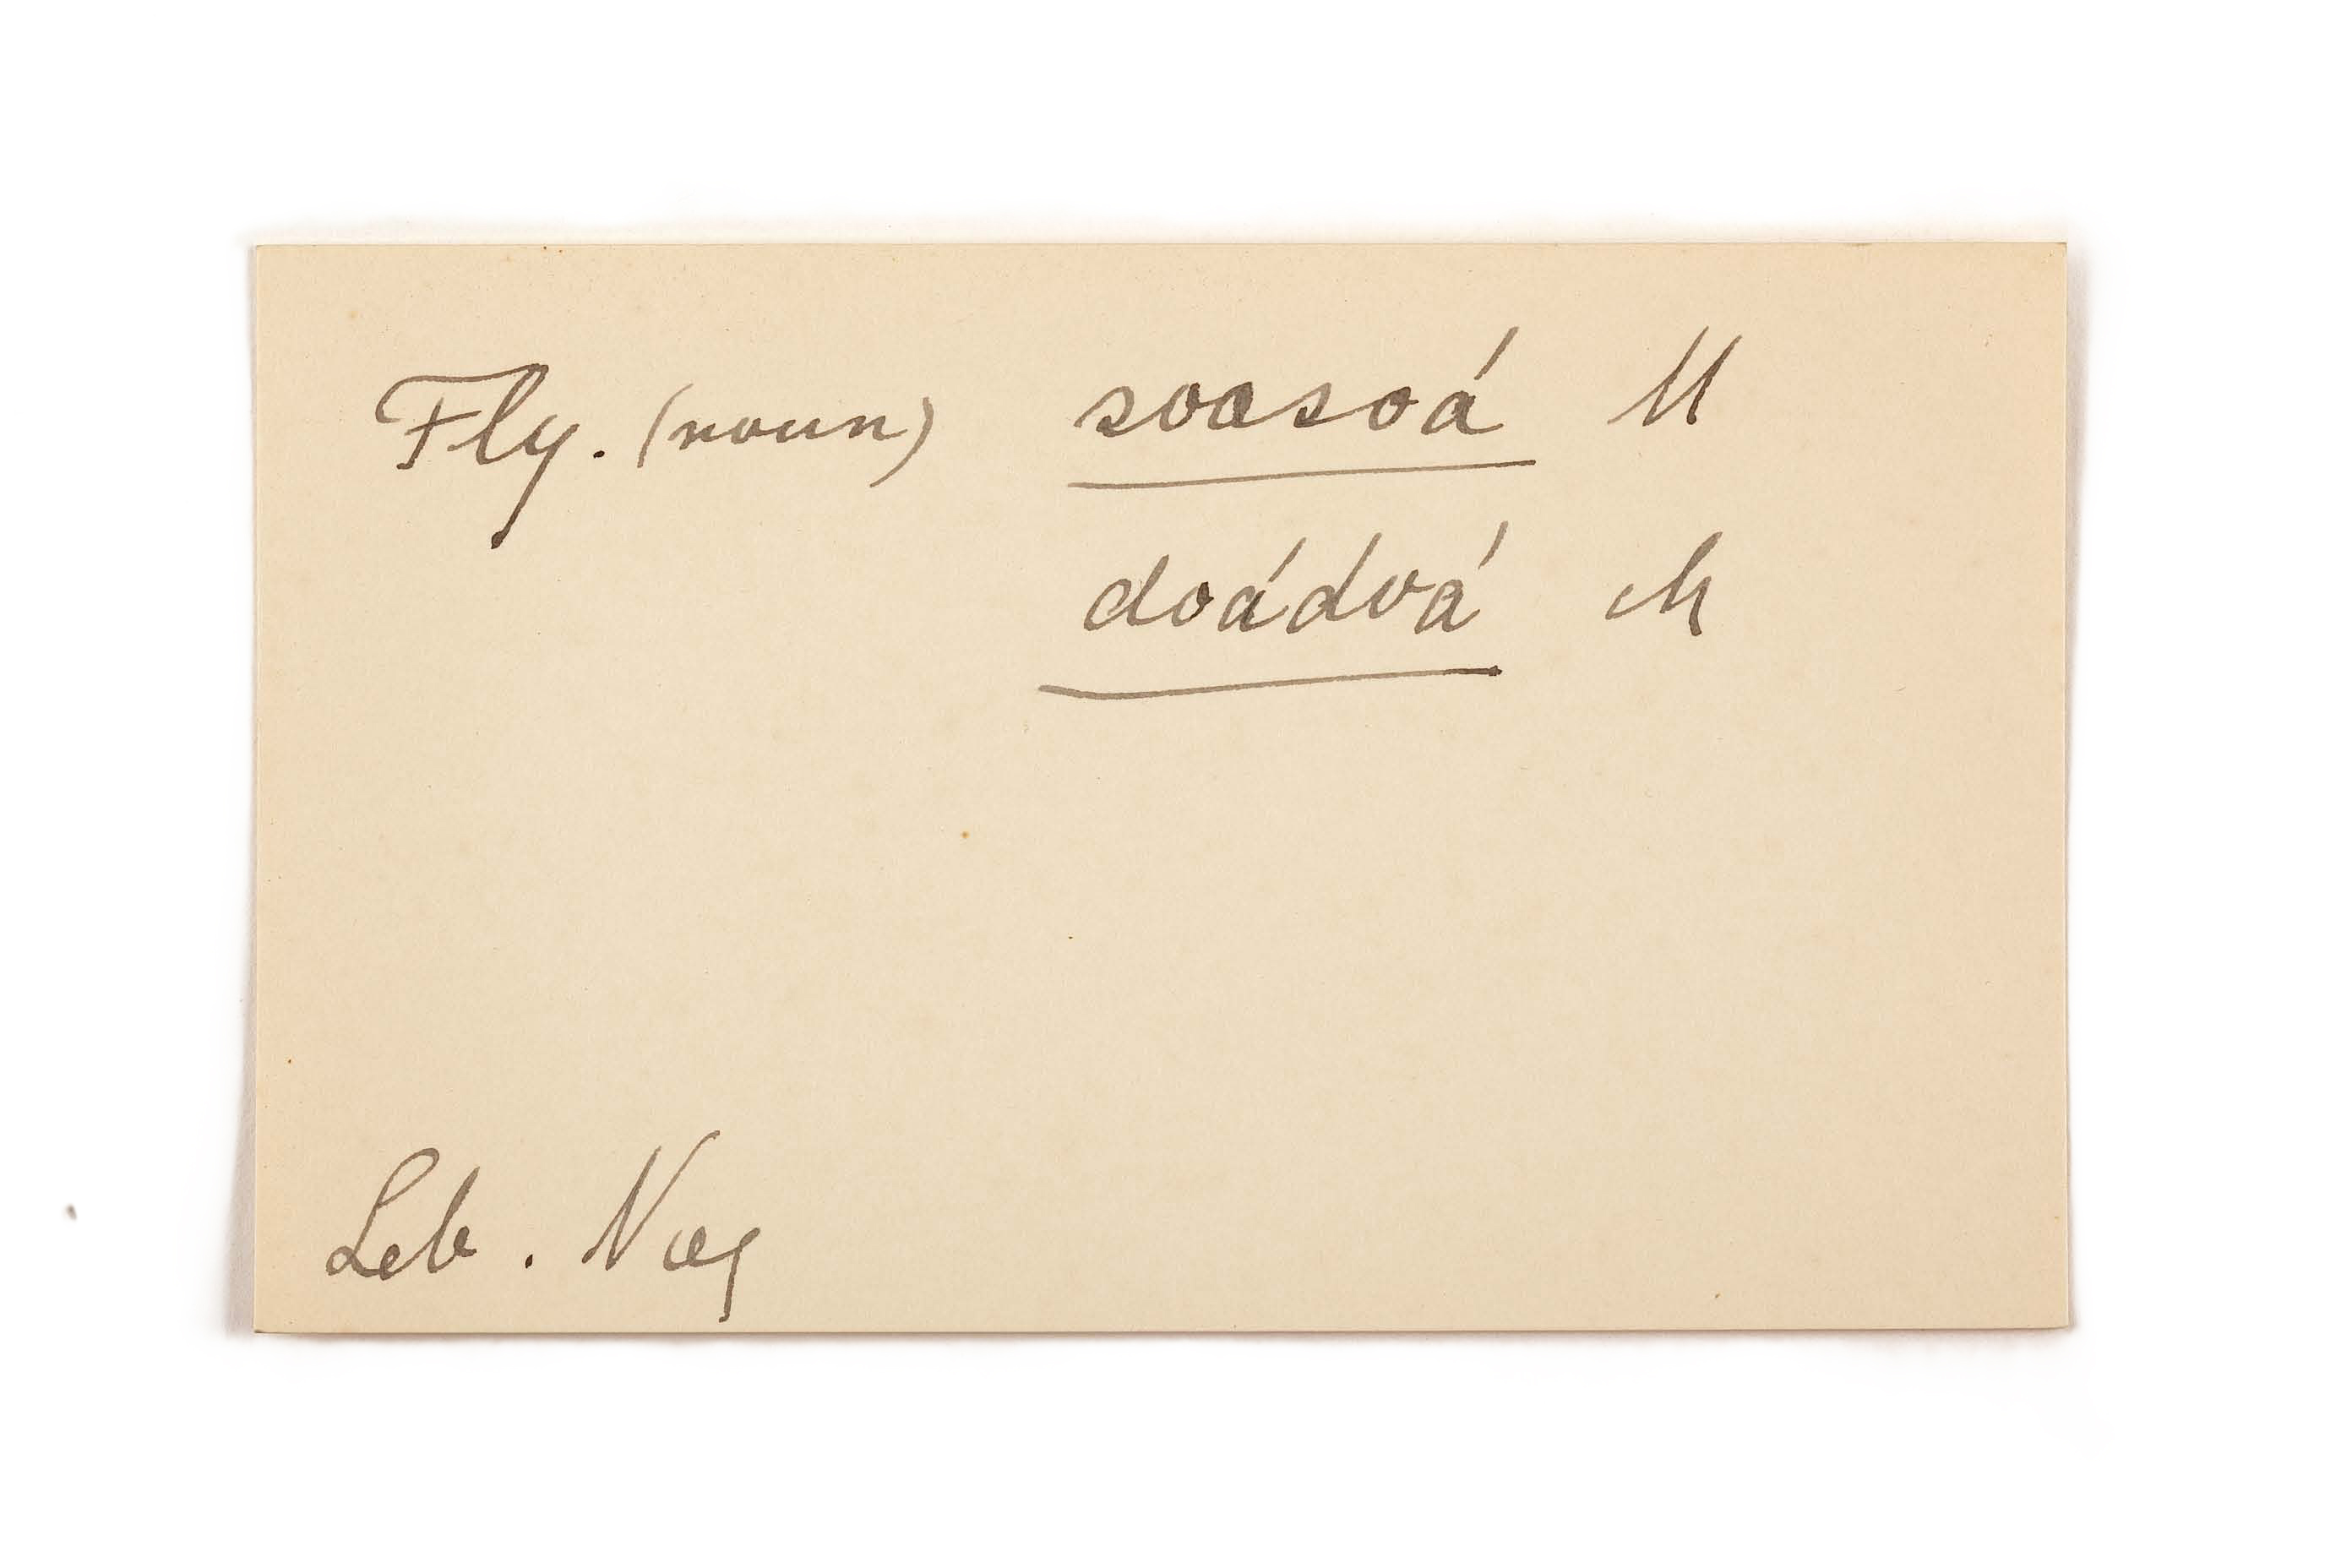 Fly. (noun) soasoá M
doádvá M
Leb. Naq